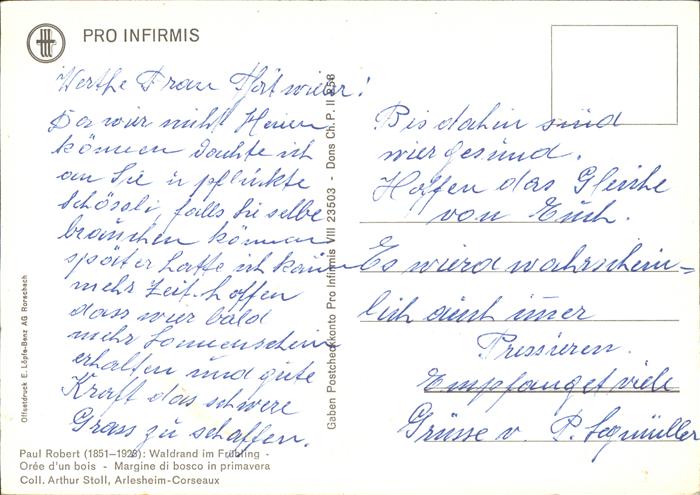 PRO INFIRMIS
Werthe Frau
Da wier nicht Heuen
können dachte ich
an Sie u pflückte
Schössli, falls Sie selbe
brauchen können
später hatte ich kaum
mehr Zeit. hoffen
dass wier bald
mehr Sonnenschein
erhalten und gute
Kraft das schwere
Grass zu schaffen.
Bis dahin sind
wier gesund.
Hoffen das Gleiche
von Euch.
Es wierd wahrschein=
lich auch imer
Pressieren.
Empfanget viele
Grüsse v. P. Segmüller
Gaben Postcheckkonto Pro Infirmis VIII 23503 - Dons Ch. P. II 258
Offsetdruck E. Löpfe-Benz AG Rorschach
Paul Robert (1851–1923): Waldrand im Frühling -
Orée d'un bois - Margine di bosco in primavera
Coll. Arthur Stoll, Arlesheim-Corseaux